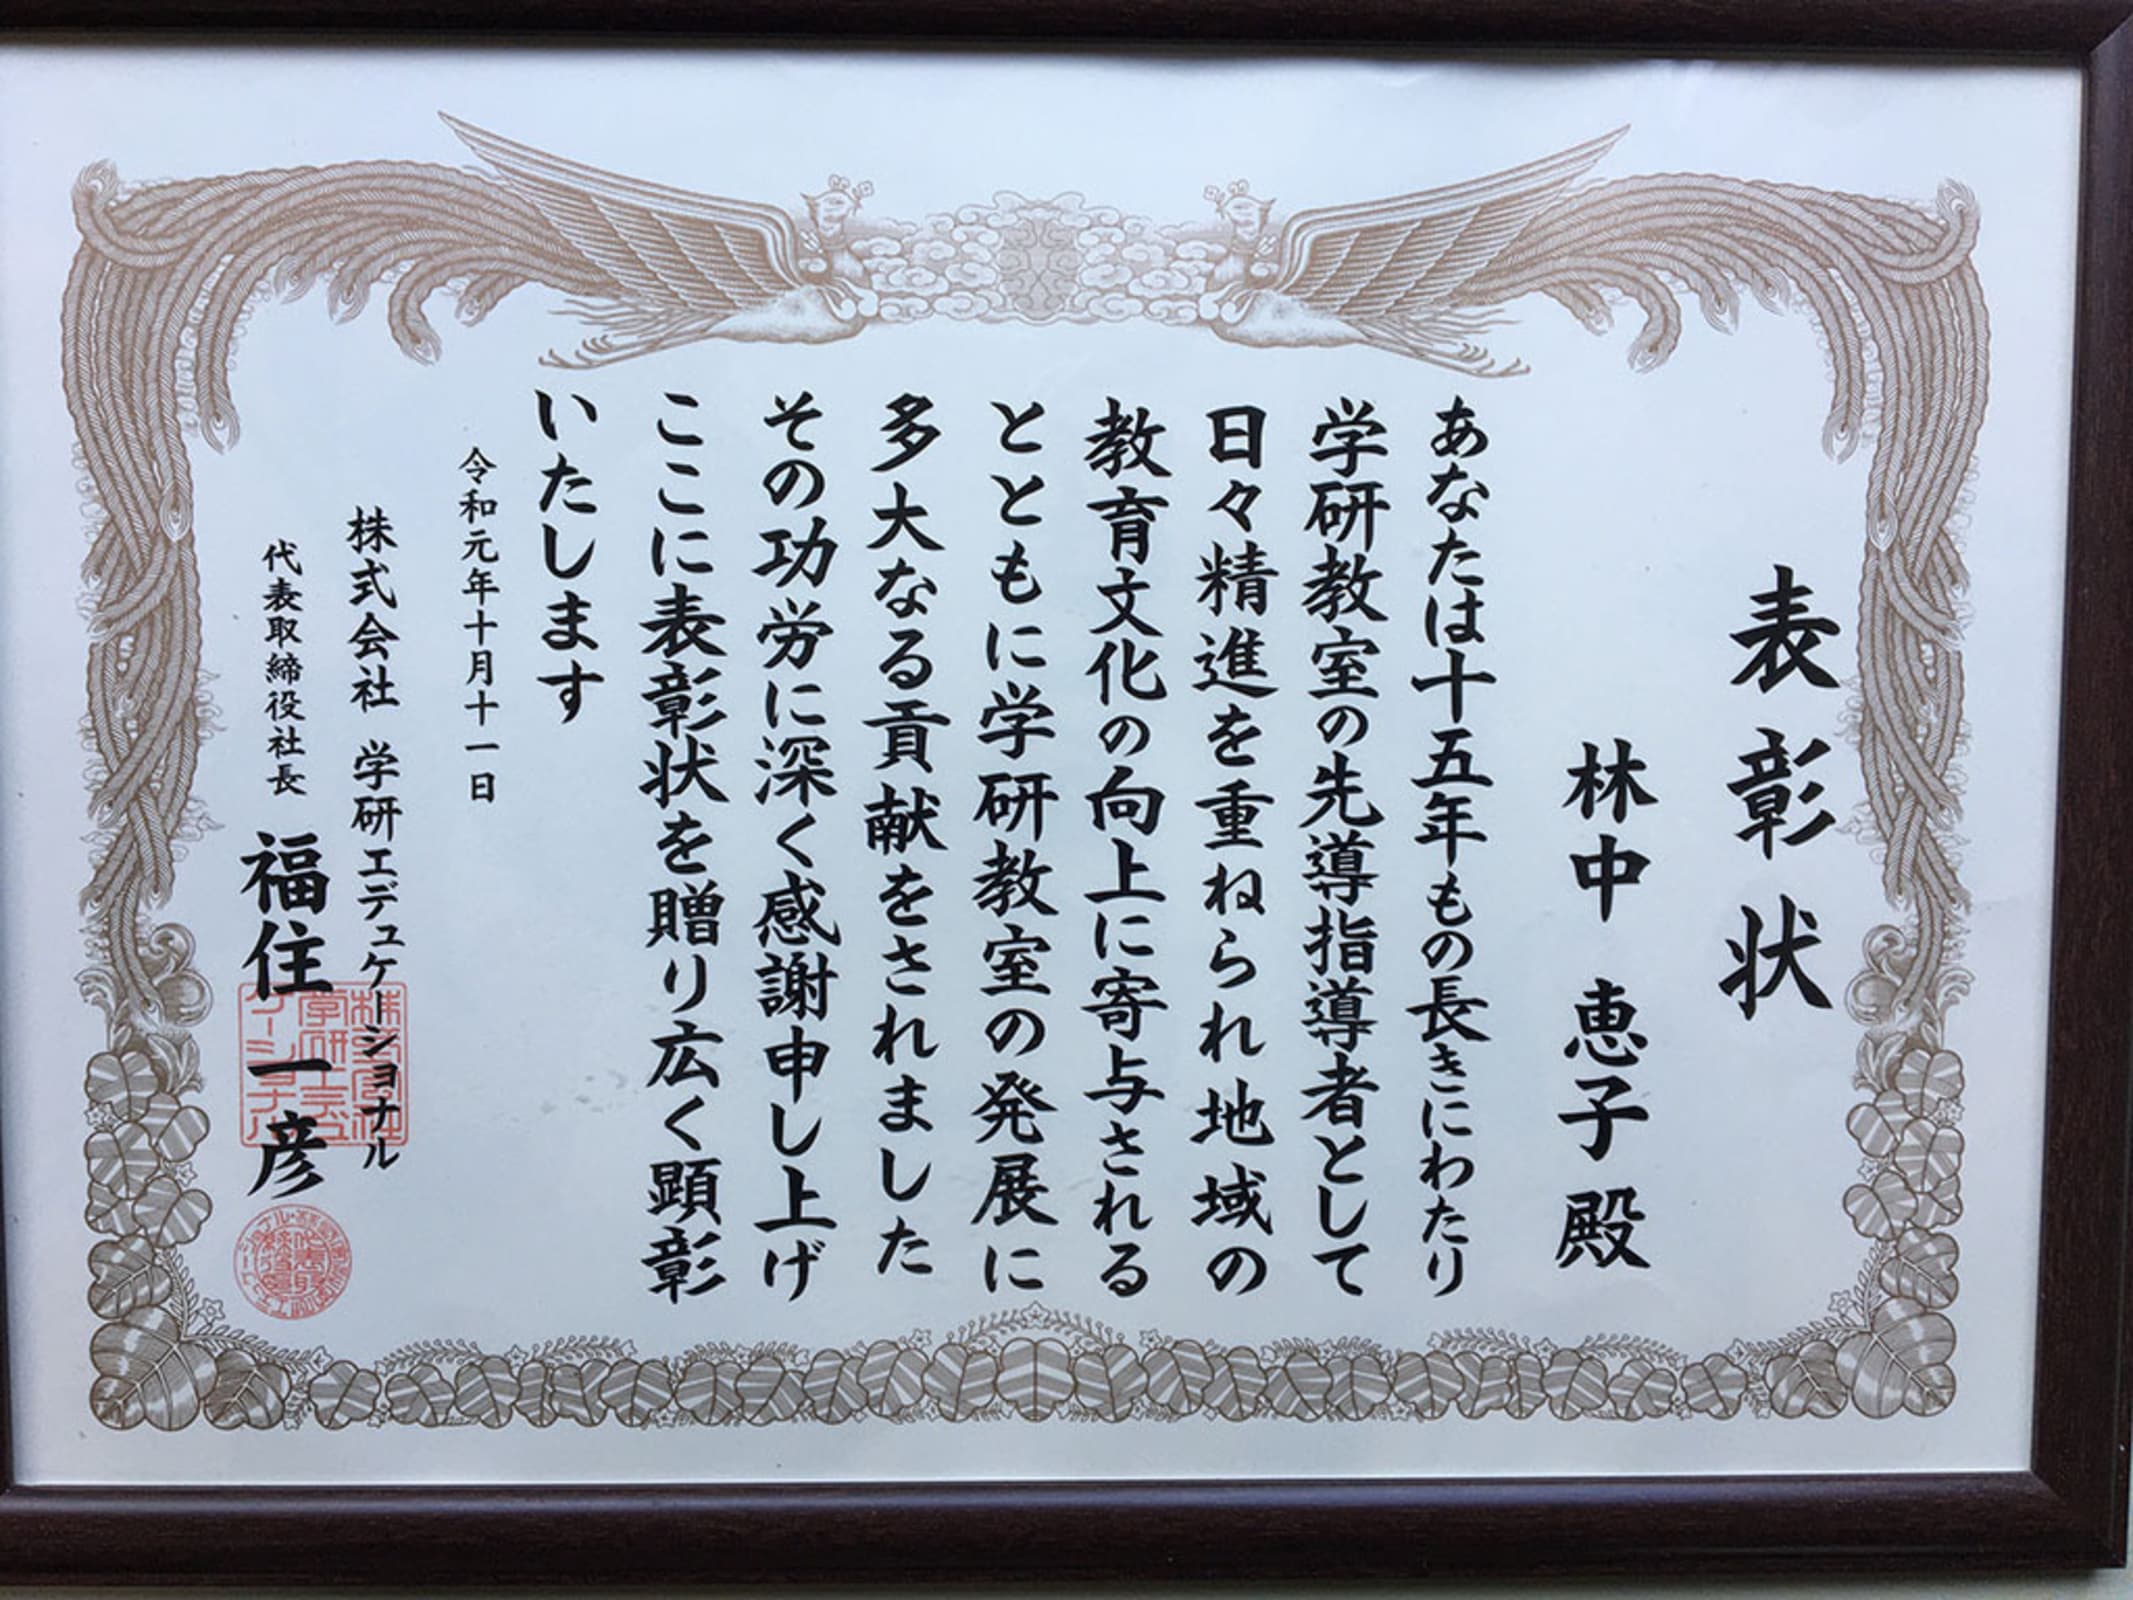 表彰状
林中 恵子 殿
あなたは十五年もの長きにわたり
学研教室の先導指導者として
日々精進を重ねられ地域の
教育文化の向上に寄与される
とともに学研教室の発展に
多大なる貢献をされました
その功労に深く感謝申し上げ
ここに表彰状を贈り広く顕彰
いたします
令和元年十月十一日
株式会社 学研エデュケーショナル
代表取締役社長 福住 一彦
株式会社
学研エデュ
ケーショナル